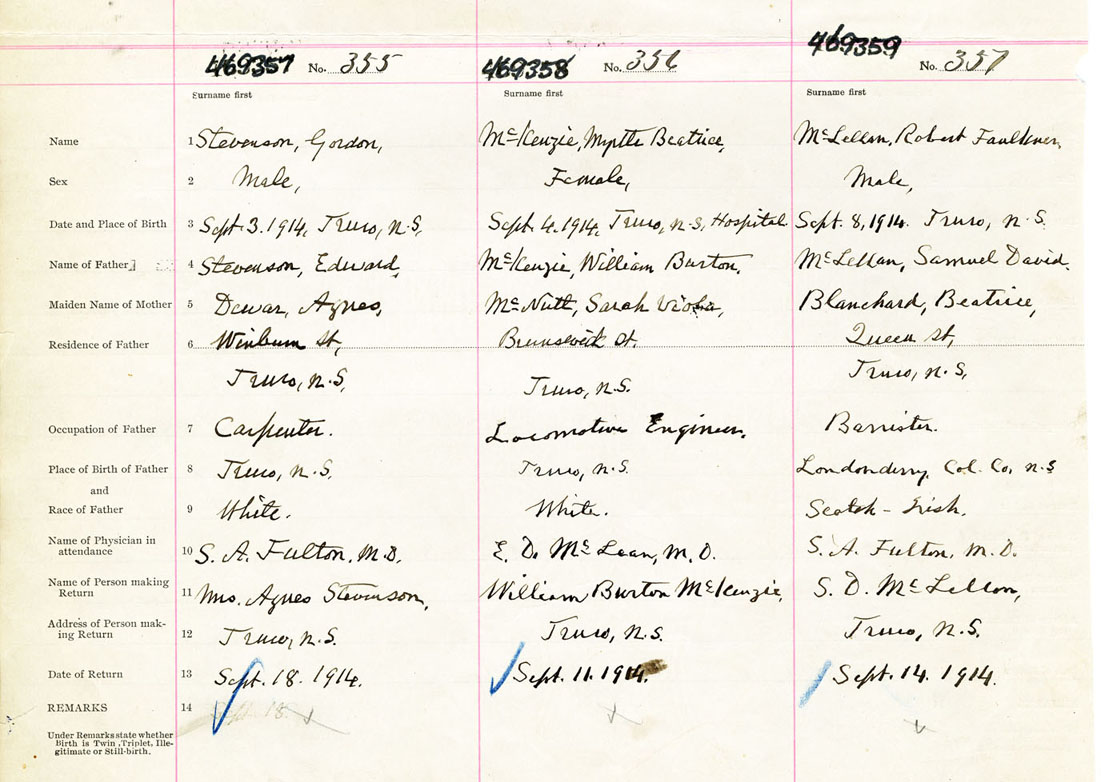 469357 No. 355 469358 No. 356 469359 No. 357
Surname first Surname first Surname first
Name 1 Stevenson, Gordon, McKenzie, Myrtle Beatrice, McLellan, Robert Faulkner,
Sex 2 Male, Female, Male,
Date and Place of Birth 3 Sept. 3. 1914, Truro, N.S, Sept. 4. 1914, Truro, N.S, Hospital Sept. 8, 1914. Truro, N.S.
Name of Father 4 Stevenson, Edward, McKenzie, William Burton, McLellan, Samuel David.
Maiden Name of Mother 5 Dewar, Agnes, McNutt, Sarah Viola, Blanchard, Beatrice,
Residence of Father 6 Winburn St, Brunswick St. Queen St,
Truro, N.S, Truro, N.S. Truro, N.S,
Occupation of Father 7 Carpenter. Locomotive Engineer. Barrister.
Place of Birth of Father 8 Truro, N.S. Truro, N.S. Londonderry, Col. Co, N.S
and
Race of Father 9 White. White. Scotch-Irish.
Name of Physician in
attendance 10 S. A. Fulton, M.D. E. D. McLean, M.D. S. A. Fulton, M.D.
Name of Person making
Return 11 Mrs. Agnes Stevenson, William Burton McKenzie, S. D. McLellan,
Address of Person mak-
ing Return 12 Truro, N.S. Truro, N.S. Truro, N.S.
Date of Return 13 Sept. 18. 1914. Sept. 11. 1914. Sept. 14. 1914.
REMARKS 14 Sept. 18.
Under Remarks state whether
Birth is Twin, Triplet, Ille-
gitimate or Still-birth.